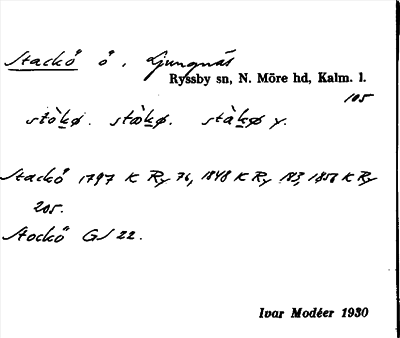 Stackö ö. Ljungnäs
Ryssby sn, N. Möre hd, Kalm. l.
105
stòkø. stòkø. stàkø y.
Stackö 1797 K Ry 76, 1848 K Ry 183, 1850 K Ry
205.
Stockö GS 22.
Ivar Modéer 1930